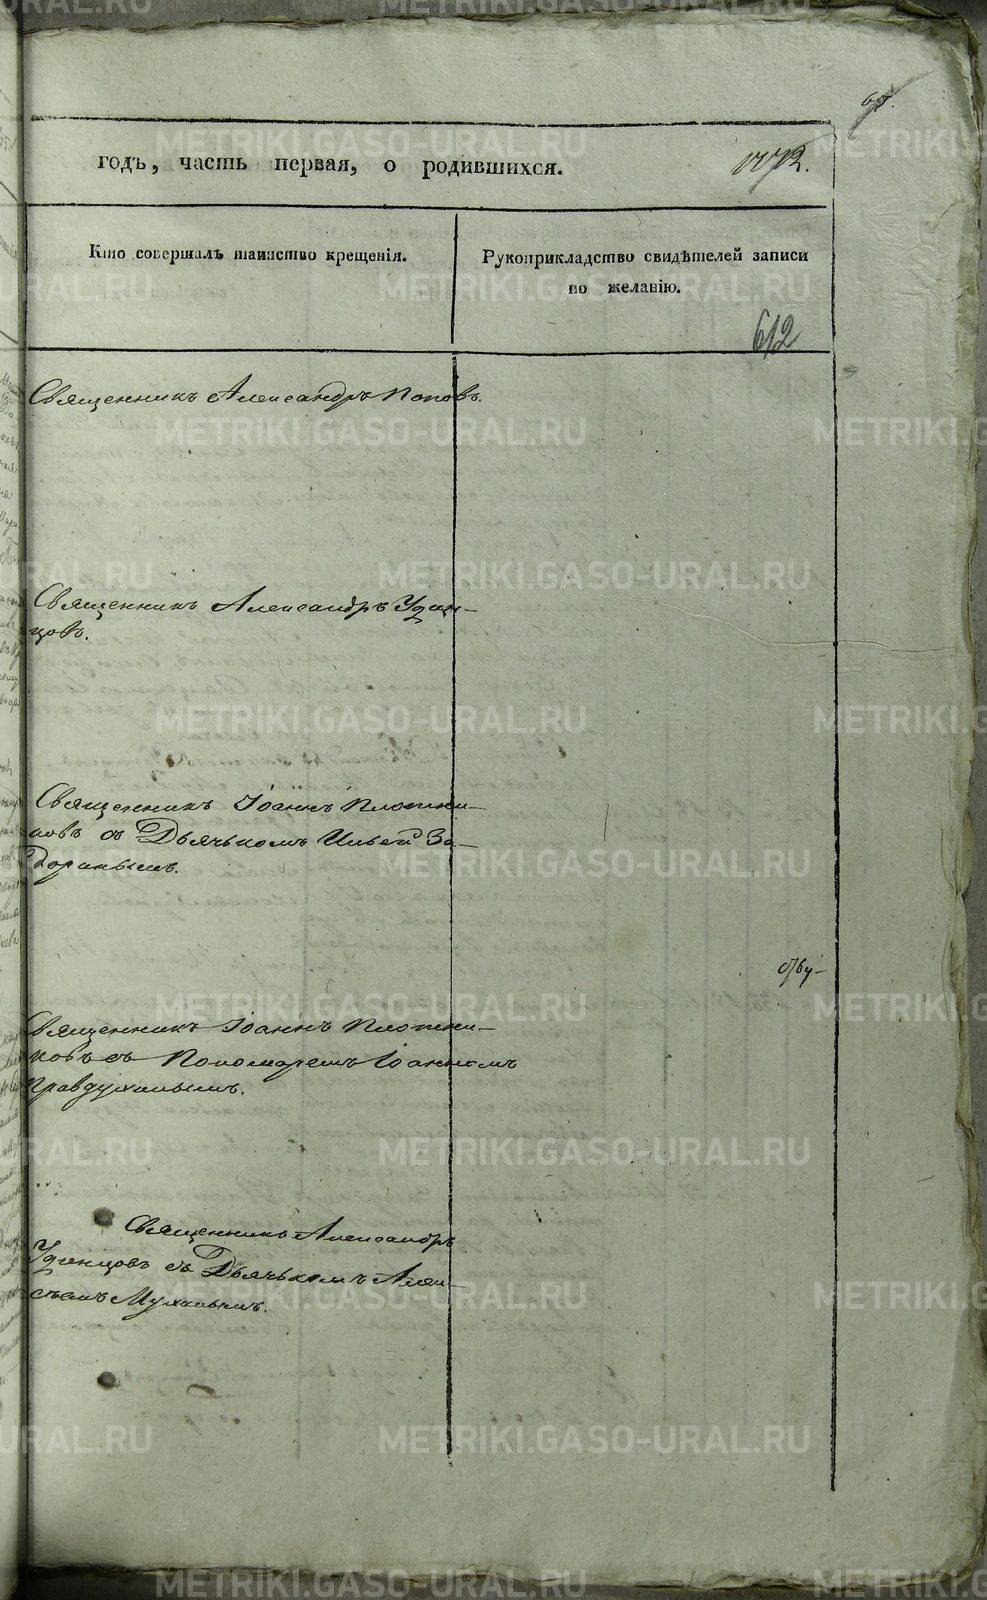 годъ, часть первая, о родившихся.
612
Кто совершалъ таинство крещенія.
Рукоприкладство свидѣтелей записи
по желанію.
Священникъ Александръ Поповъ.
Священникъ Александръ Удин-
цовъ.
Священникъ Іоаннъ Плотни-
ковъ съ Дьячькомъ Ильей За-
доринымъ.
Священникъ Іоаннъ Плотни-
ковъ съ Пономаремъ Іоанномъ
Правдухинымъ.
Священникъ Александръ
Удинцовъ съ Дьячькомъ Алек-
сѣемъ Мухинымъ.
METRIKI.GASO-URAL.RU